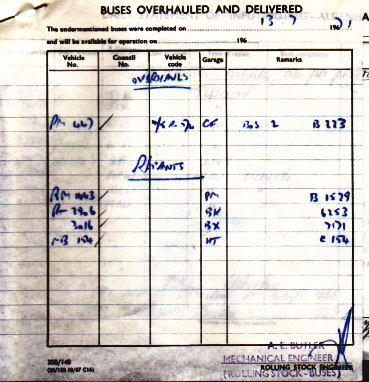 BUSES OVERHAULED AND DELIVERED
The undermentioned buses were completed on 13 7 1971
and will be available for operation on 196
Vehicle No. Council No. Vehicle code Garage Remarks
OVERHAULS
RM 447 CF BoS 2 B 223
REPAINTS
RM 1443 PM B 1529
RM 2906 BN 6253
3016 BX 7171
MB 154 HT E 154
A. E. BUTLER
MECHANICAL ENGINEER
ROLLING STOCK ENGINEER
(ROLLING STOCK - BUSES)
30B/140